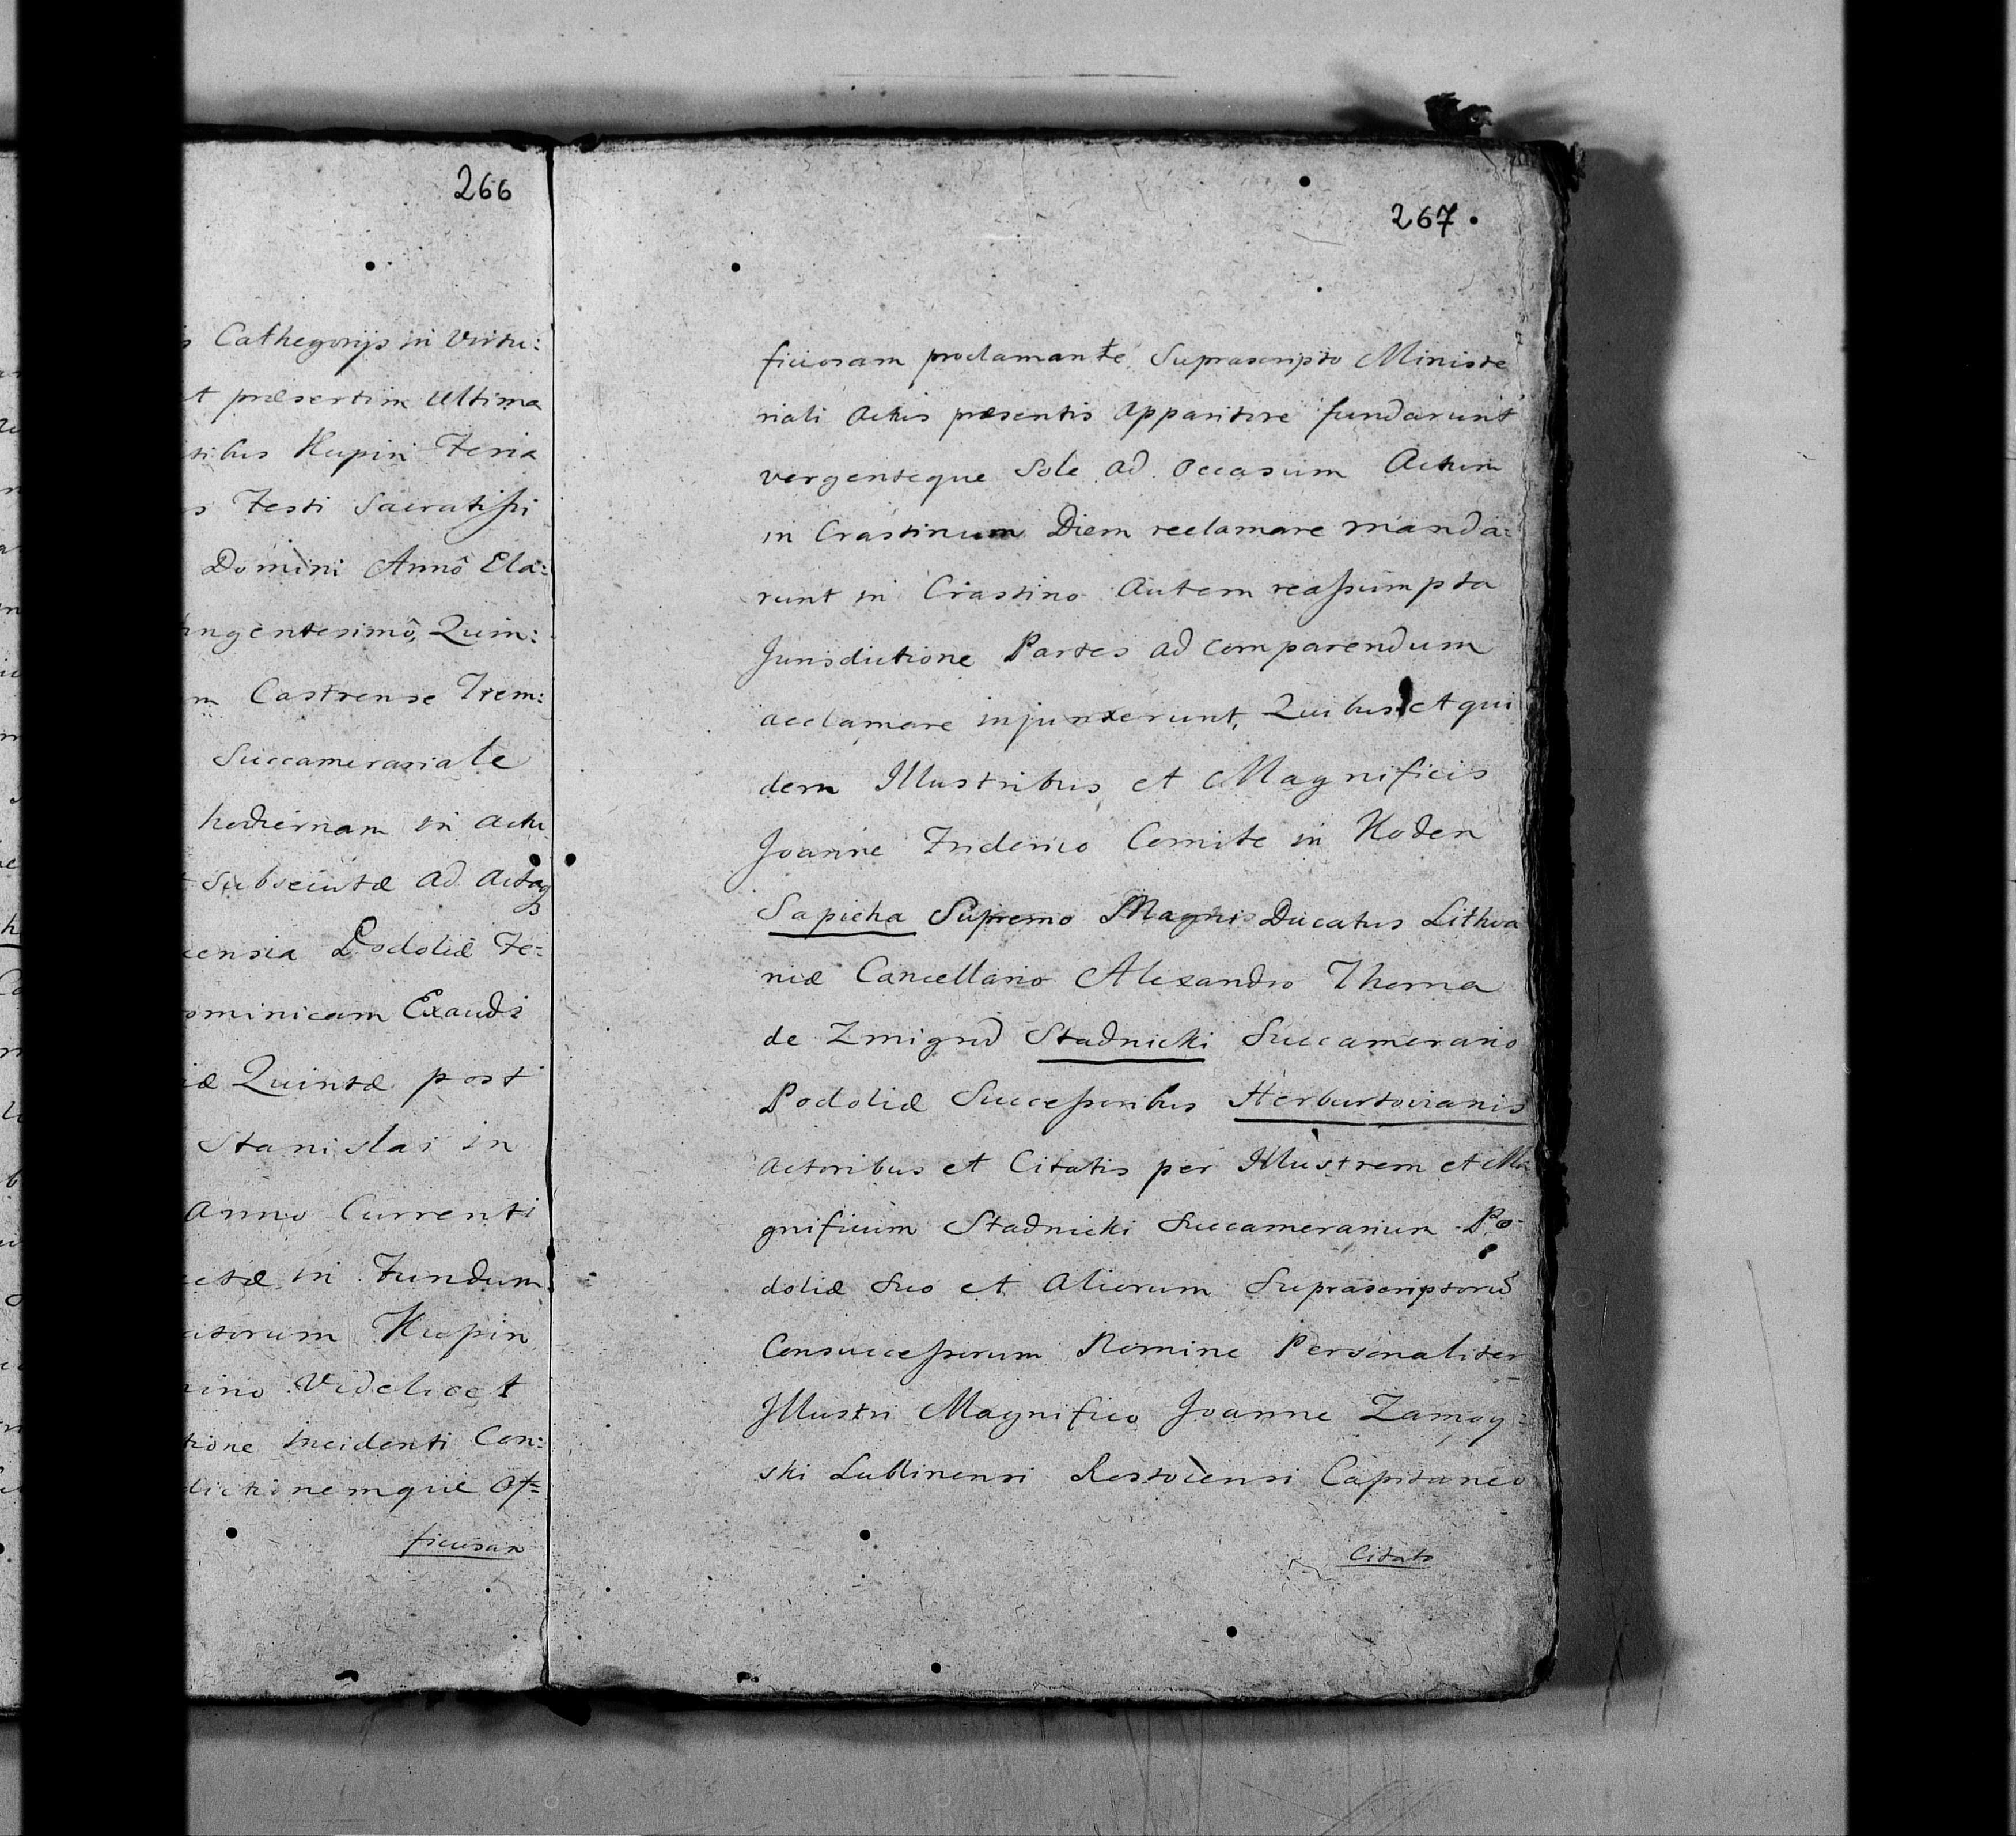 266
Cathegorijs in Virtu:
t præsertim ultima
Kupin Feria
s Festi Sacratissi
Domini Annô Ela:
ingentesimô, Quin:
m Castrense Trem:
Succamerariale
hodiernam in actu
Subsecutæ ad acta
censia Podoliæ Fe:
ominicam Exaudi
iæ Quintæ post
Stanislai in
Anno Currenti
in Fundum
atorum Kupin
Videlicet
tione incidenti Con:
dictionemque of=
ficiosam
267.
ficiosam proclamante Suprascripto Ministe
riali Actus præsentis Apparitore fundarunt
vergenteque Sole ad occasum Actum
in Crastinum Diem reclamare manda:
runt in Crastino Autem reassumpta
Jurisdictione Partes ad comparendum
acclamare injunxerunt, Quibus et qui
dem Illustribus et Magnificis
Joanne Friderico Comite in Koden
Sapieha Supremo Magni Ducatus Lithva
niæ Cancellario Alexandro Thoma
de Zmigrod Stadnicki Succamerario
Podoliæ Successoribus Herburtovianis
Actoribus et Citatis per Illustrem et Ma
gnificum Stadnicki Succamerarium Po-
doliæ Suo et Aliorum Suprascriptorũ
Consuccessorum Nomine Personaliter
Illustri Magnifico Joanne Zamoy=
ski Lublinensi Rostocensi Capitaneo
Citato